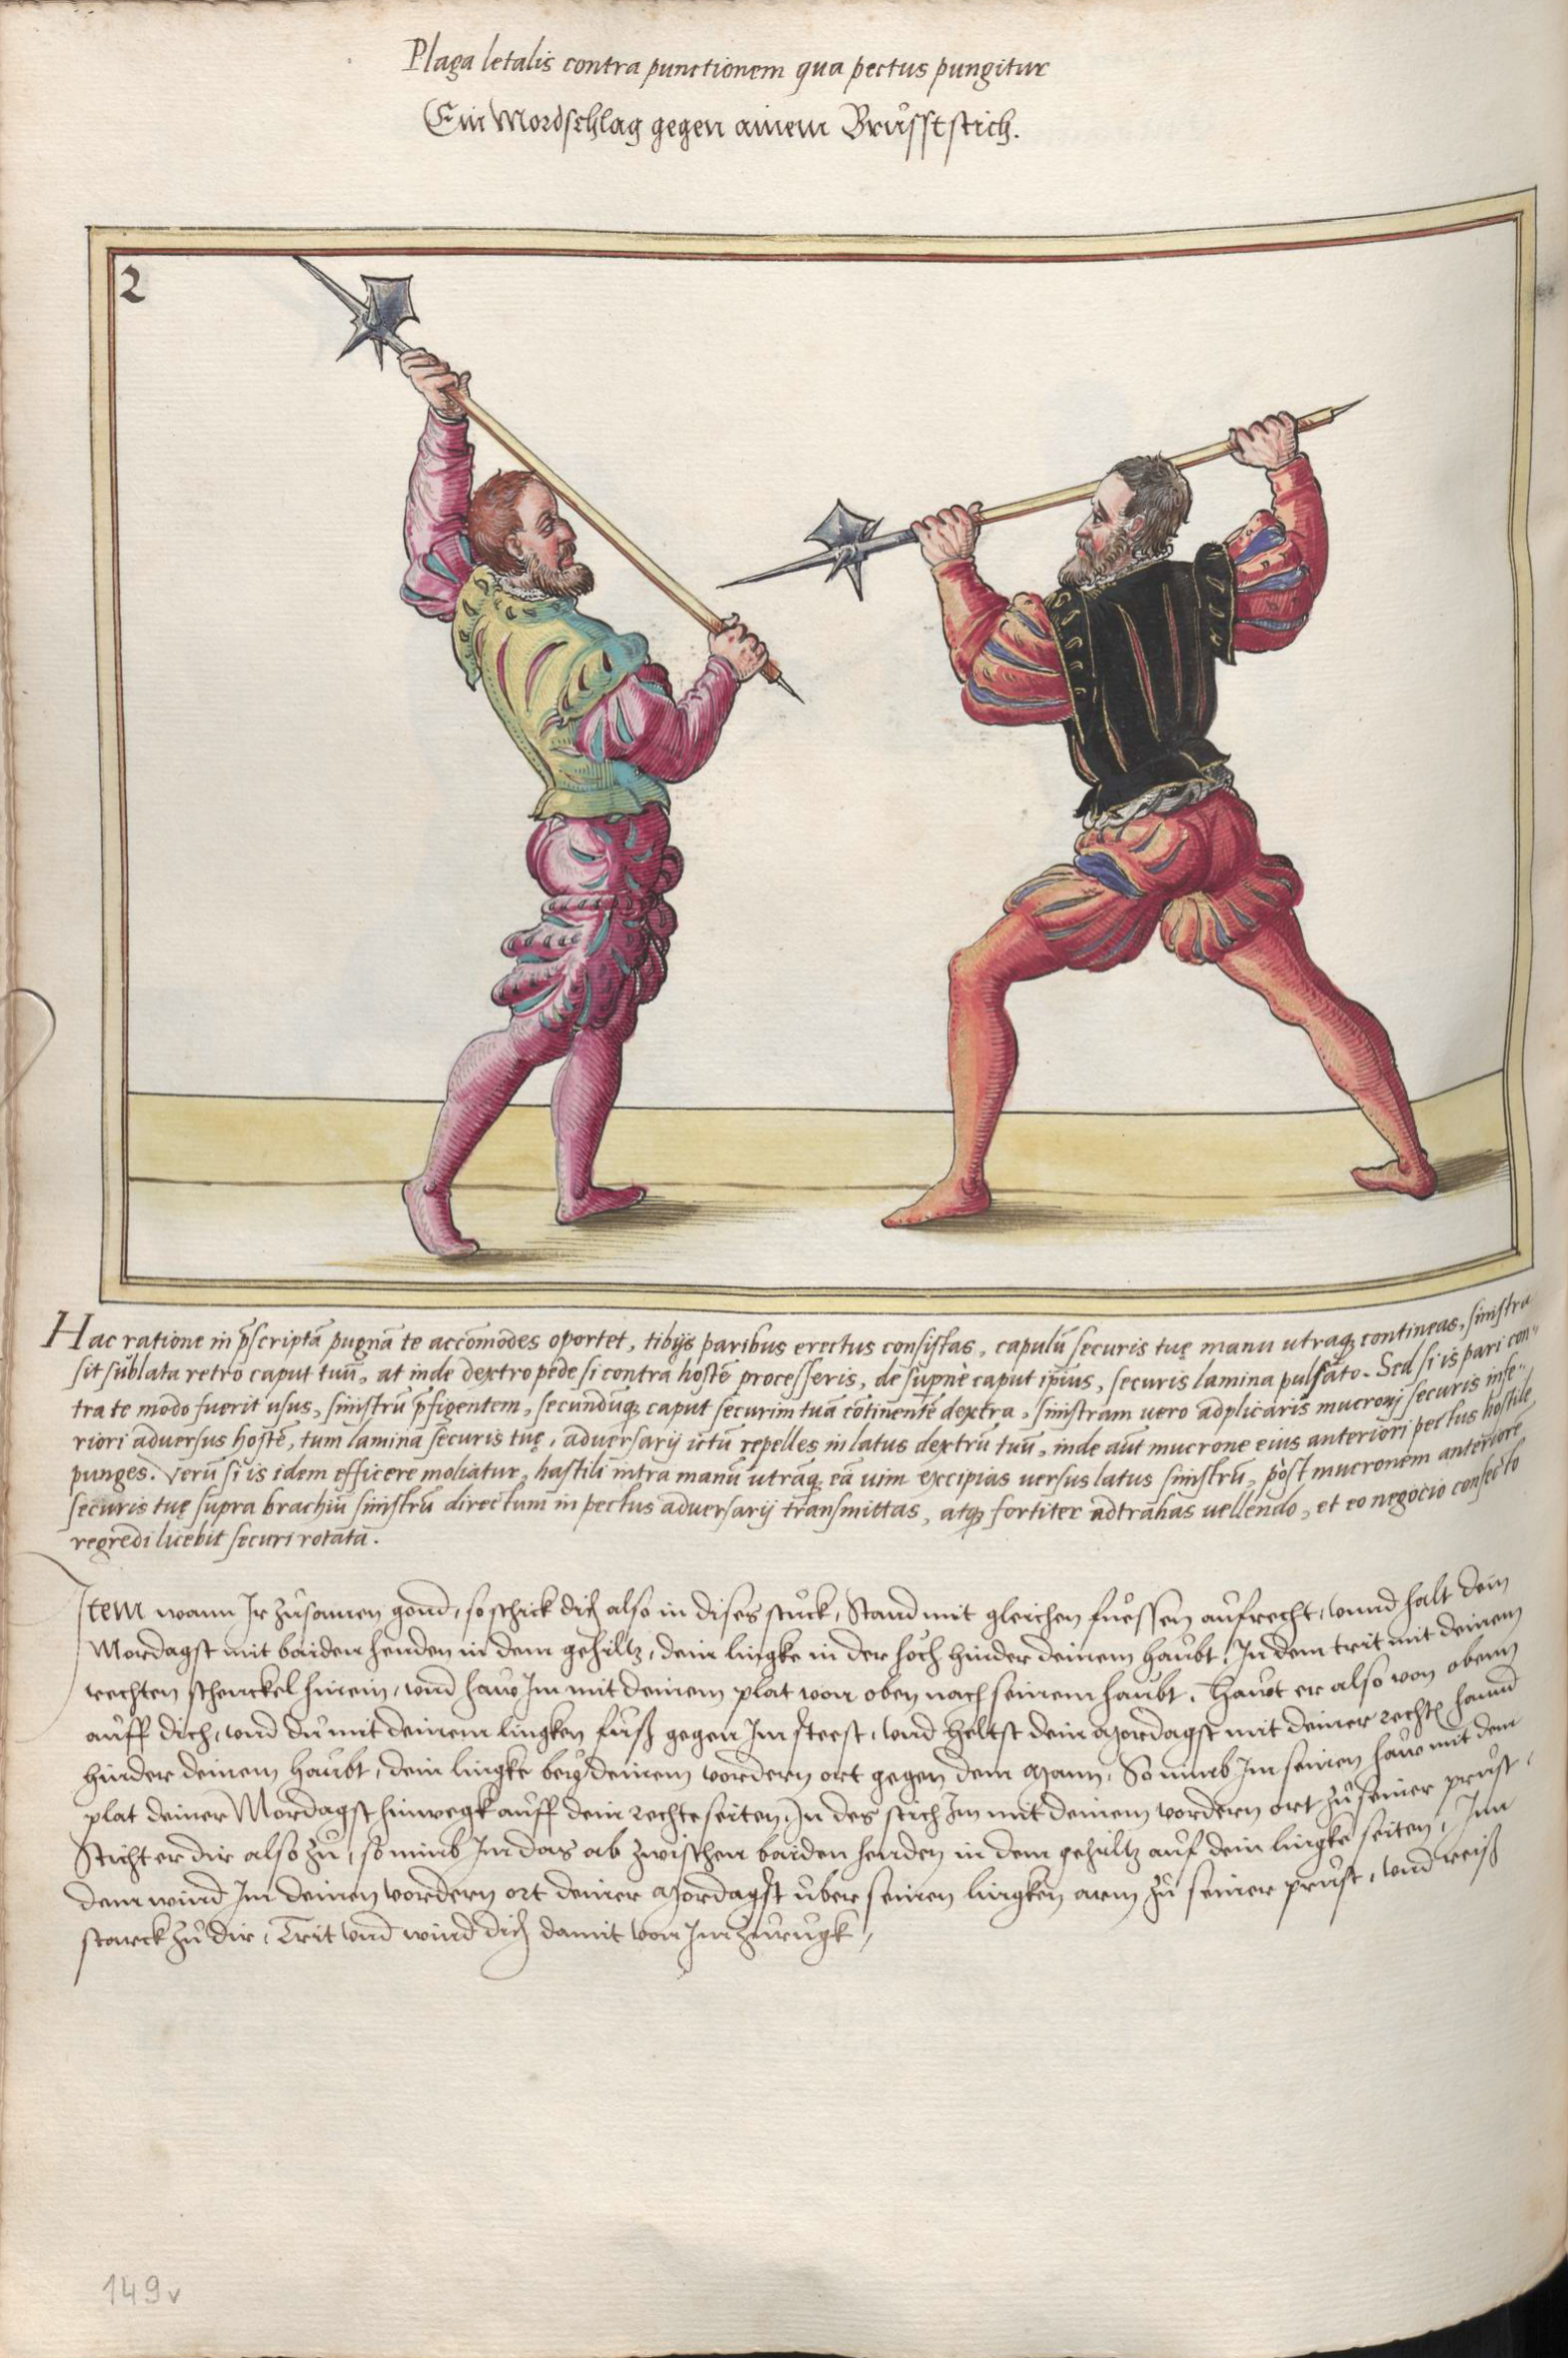 Plaga letalis contra punctionem qua pectus pungitur
Ein Mordschlag gegen ainem Brůsststich.
2
Hac ratione in p̄scriptā pugnā te accōmodes oportet, tibijs paribus erectus consistas, capulū securis tuę manu utraq; contineas, sinistra
sit sublata retro caput tuū, at inde dextro pede si contra hostē processeris, de supnè caput ipius, securis lamina pulsato. Sed si is pari con-
tra te modo fuerit usus, sinistrū p̄figentem, secundūq; caput securim tuā cōtinentē dextra, sinistram uero adplicaris mucronj securis infe-
riori aduersus hostē, tum laminā securis tuę, aduersarij ictū repelles in latus dextrū tuū, inde aūt mucrone eius anteriori pectus hostile
punges. Verū si is idem efficere moliatur, hastili intra manū utrāq; eā uim excipias uersus latus sinistrū, pòst mucronem anteriorē
securis tuę supra brachiū sinistrū directum in pectus aduersarij transmittas, atq; fortiter adtrahas uellendo, et eo negocio confecto
regredi licebit securi rotata.
Item wann Ir zůsamen gond, so schick dich also in dises stůck, Stand mit gleichen fuessen aůfrecht, vnnd halt dein
Mordagst mit baiden henden in dem gehiltz, dein lingke in der höch hinder deinem haůbt, In dem trit mit deinem
rechten schenckel hinein, vnd haw Im mit deinem plat von oben nach seinem haůbt. Hawt er also von obenn
aůff dich, vnd dů mit deinem lingken fůß gegen Im steest, vnd heltst dein Mordagst mit deiner rechtē hannd
hinder deinem haůbt, dein lingke bey deinem vordern ort gegen dem Mann, So nimb Im seinen haw mit dem
plat deiner Mordagst hinwegk aůff dein rechte seiten, In des stich Im mit deinem vordern ort zů seiner průst,
Sticht er dir also zů, so nimb Im das ab zwischen baiden henden in dem gehiltz auf dein lingke seiten, Inn
dem wind Im deinen vordern ort deiner Mordagst über seinen lingken arm zů seiner průst, vnd reiß
starck zů dir, Trit vnd wind dich damit von Im zůrůgk,
149v